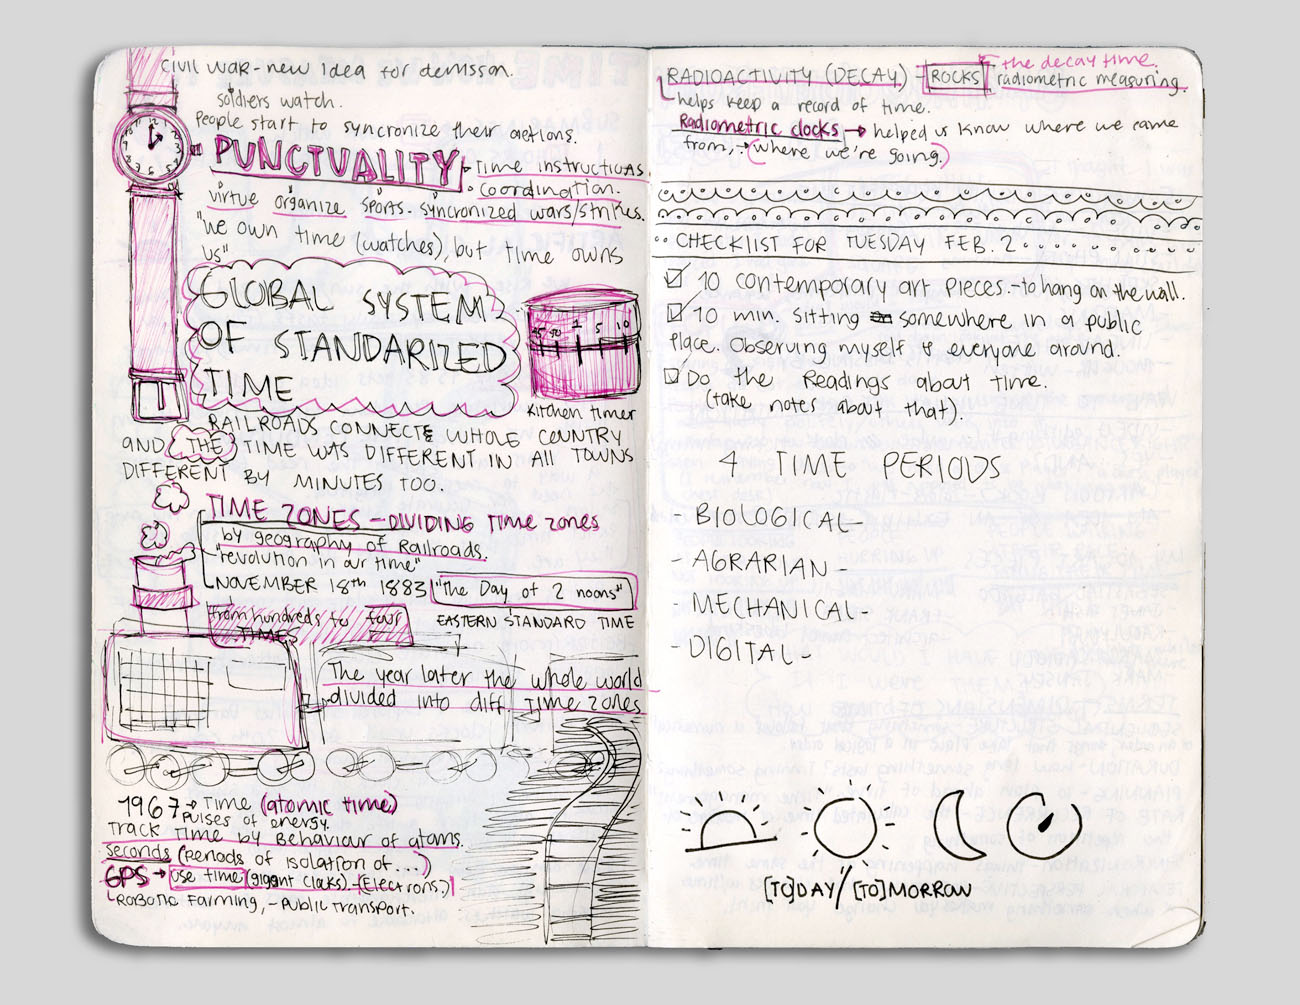 Civil War - new idea for dennison.
soldiers watch.
People start to syncronize their actions.
PUNCTUALITY
- Time instructions
- coordination.
virtue organize sports. syncronized wars/strikes.
"we own time (watches), but time owns
us"
GLOBAL SYSTEM
OF STANDARIZED
TIME
Kitchen timer
RAILROADS CONNECTS WHOLE COUNTRY
AND THE TIME WAS DIFFERENT IN All TOWNS
DIFFERENT BY MINUTES TOO.
TIME ZONES - DIVIDING Time zones
by geography of Railroads.
"revolution in our time"
NOVEMBER 18th 1883 "The Day of 2 noons"
from hundreds to four
TIMES
EASTERN STANDARD TIME
The year later the whole world
divided into diff Time zones
1967 → Time (atomic time)
Pulses of energy.
Track Time by Behaviour of atoms.
seconds (periods of isolation of...)
GPS → use time (gigant clocks). (Electrons)
Robotic Farming, - Public Transport.
the decay time.
RADIOACTIVITY (DECAY) - ROCKS radiometric measuring.
helps keep a record of time.
Radiometric clocks → helped us know where we came
from, → (where we're going)
CHECKLIST FOR TUESDAY FEB. 2
10 contemporary art pieces - to hang on the wall.
10 min. sitting somewhere in a public
Place. Observing myself & everyone around.
Do the Readings about time.
(take notes about that).
4 TIME PERIODS
- BIOLOGICAL -
- AGRARIAN -
- MECHANICAL -
- DIGITAL -
[TO]DAY // [TO]MORROW